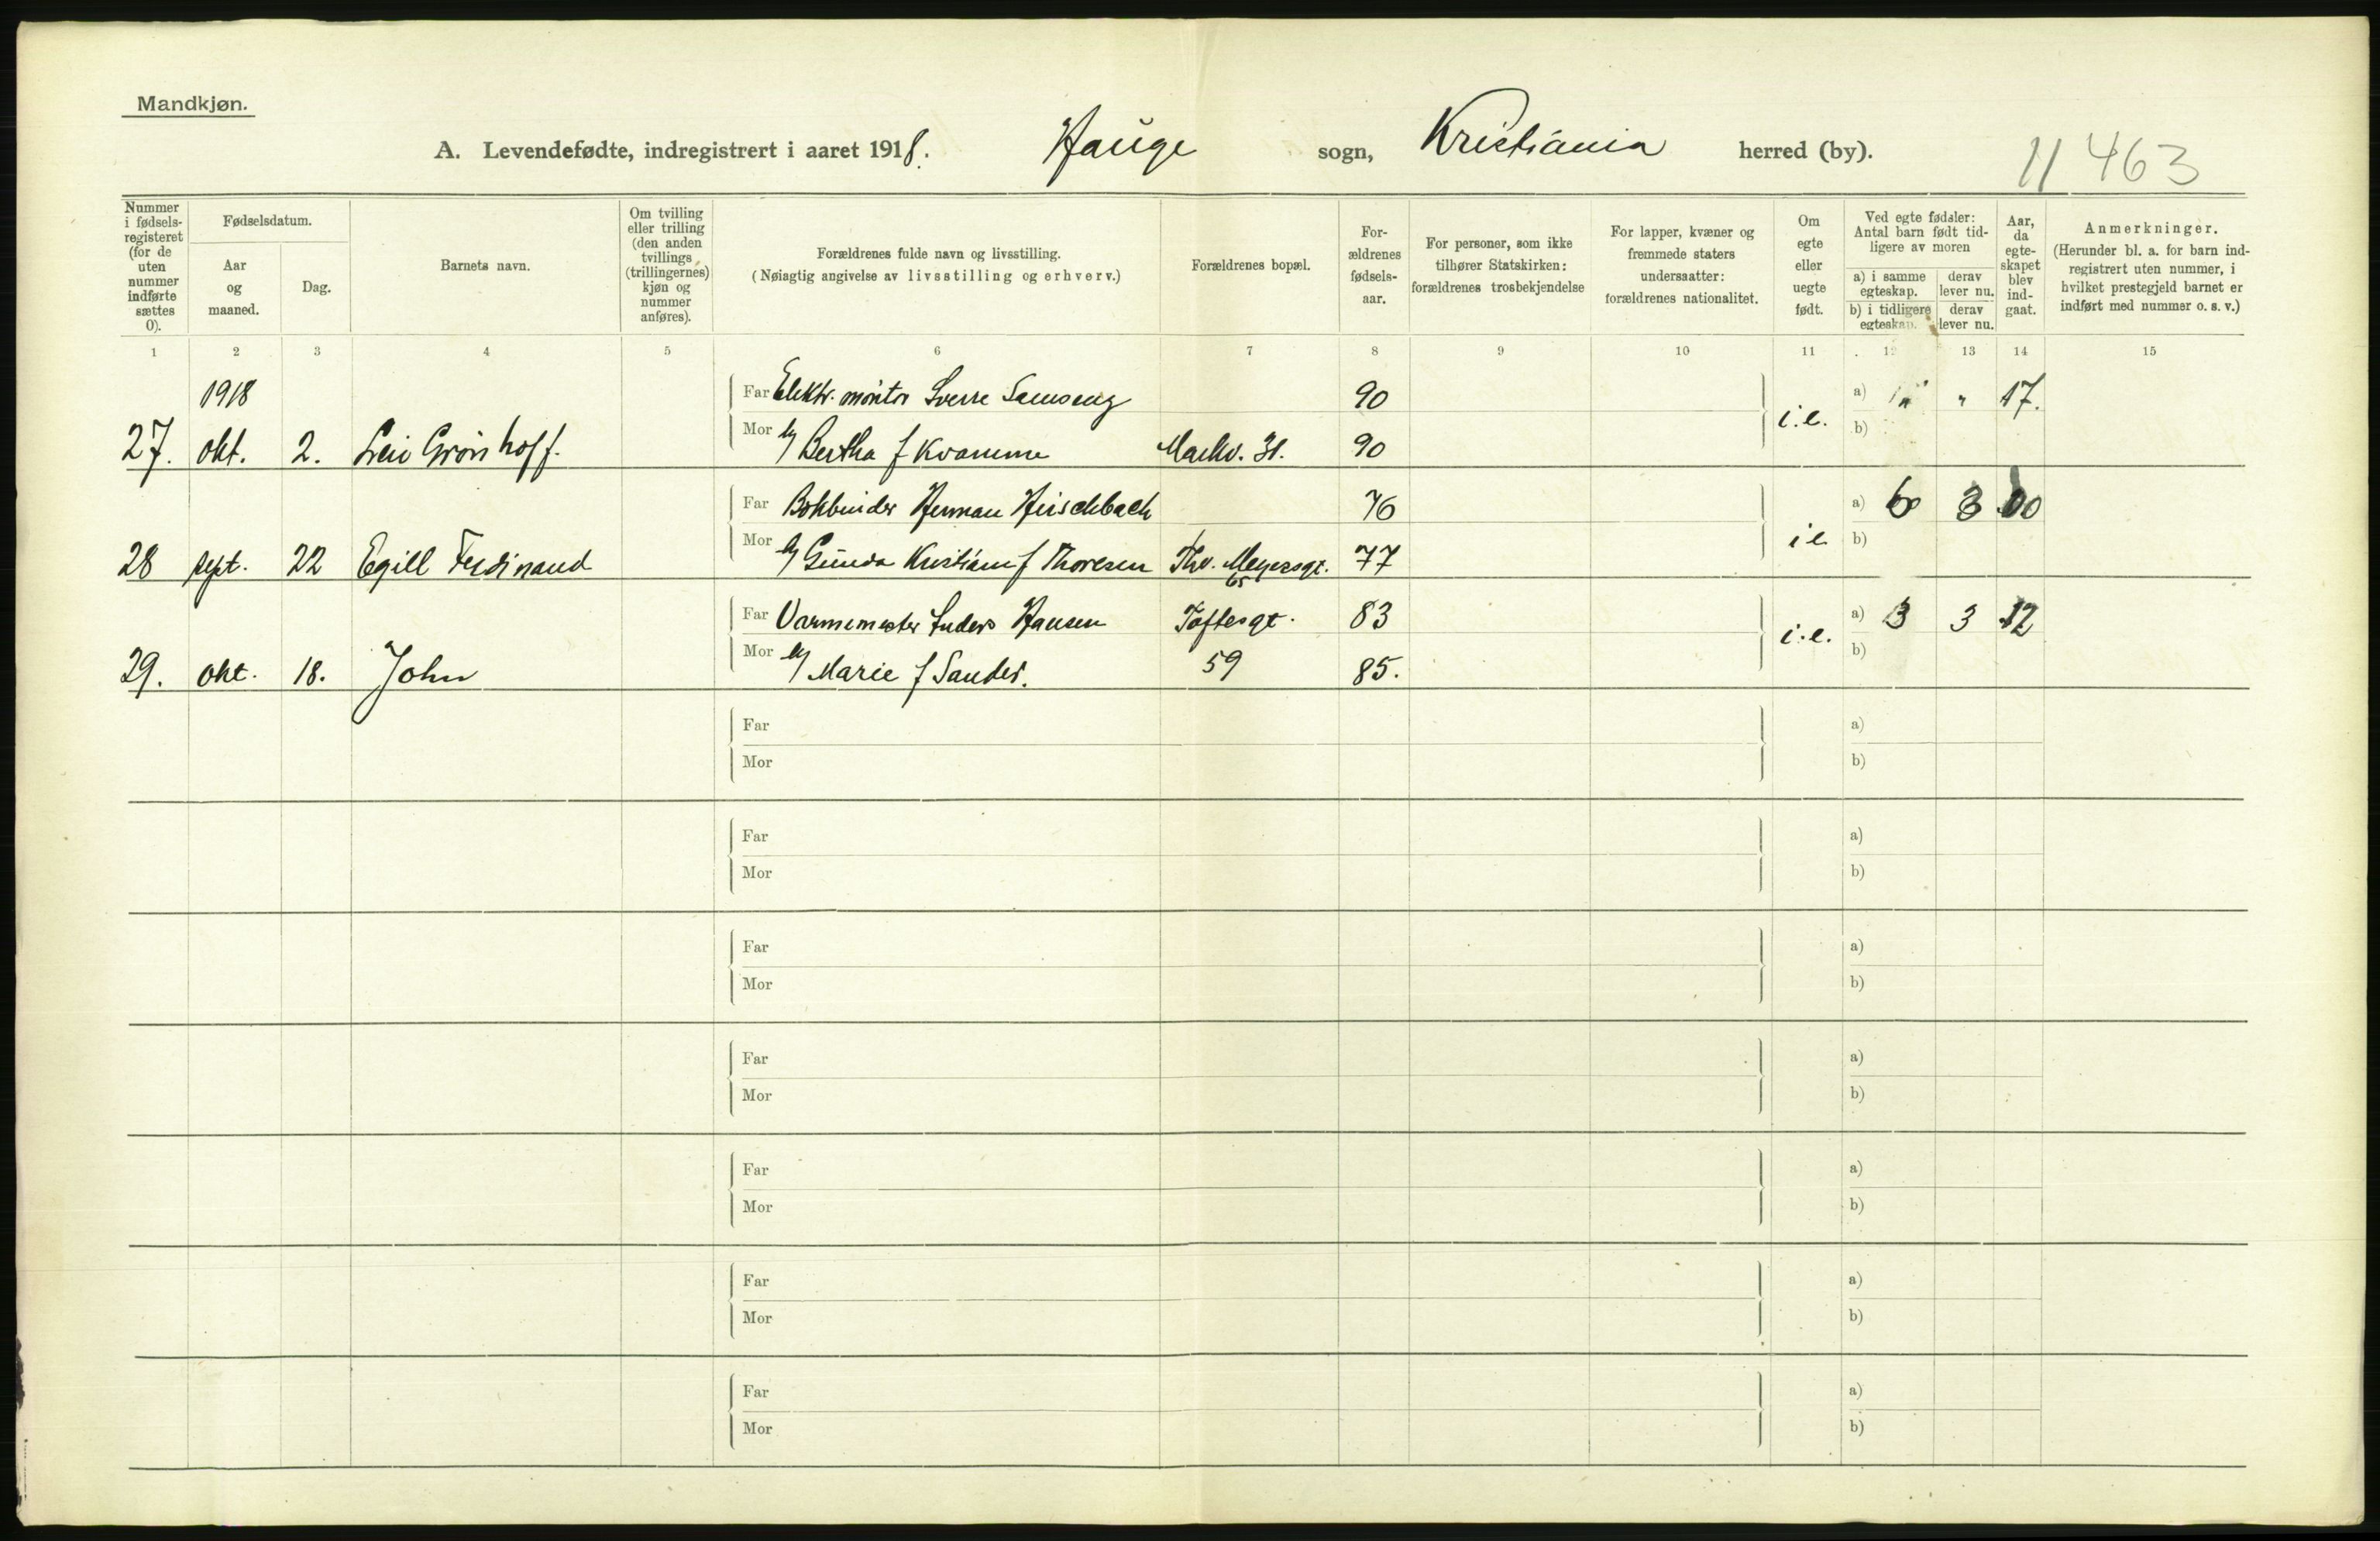 Mandkjøn.
A. Levendefødte, indregistrert i aaret 1918. Hauge sogn, Kristiania herred (by). 11 463
Nummer i fødsels-registeret (for de uten nummer indførte sættes 0).
Fødselsdatum.
Aar og maaned.
Dag.
Barnets navn.
Om tvilling eller trilling (den anden tvillings (trillingernes) kjøn og nummer anføres).
Forældrenes fulde navn og livsstilling.
(Nøiagtig angivelse av livsstilling og erhverv.)
Forældrenes bopæl.
For-ældrenes fødsels-aar.
For personer, som ikke tilhører Statskirken: forældrenes trosbekjendelse
For lapper, kvæner og fremmede staters undersaatter: forældrenes nationalitet.
Om egte eller uegte født.
Ved egte fødsler: Antal barn født tid-ligere av moren
a) i samme egteskap.
derav lever nu.
b) i tidligere egteskap.
derav lever nu.
Aar, da egte-skapet blev ind-gaat.
Anmerkninger.
(Herunder bl. a. for barn ind-registrert uten nummer, i hvilket prestegjeld barnet er indført med nummer o. s. v.)
1 2 3 4 5 6 7 8 9 10 11 12 13 14 15
1918 Far Elektr. montør Sverre Samseng 90 a) " " 17.
27. okt. 2. Grønhoff. Mor Bertha f Kvamme Markv. 31. 90 i.e. b)
Far Bokbinder Herman Hirschbach 76 a) 6 3 00
28 sept. 22 Egill Ferdinand Mor Gunda Kristiane f Thoresen Thv. Meyersgt. 65 77 i e b)
Far Varmemester Anders Hansen Toftesgt. 83 a) 3 3 12
29. okt. 18. John Mor Marie f Sander. 59 85. i.e. b)
Far a)
Mor b)
Far a)
Mor b)
Far a)
Mor b)
Far a)
Mor b)
Far a)
Mor b)
Far a)
Mor b)
Far a)
Mor b)